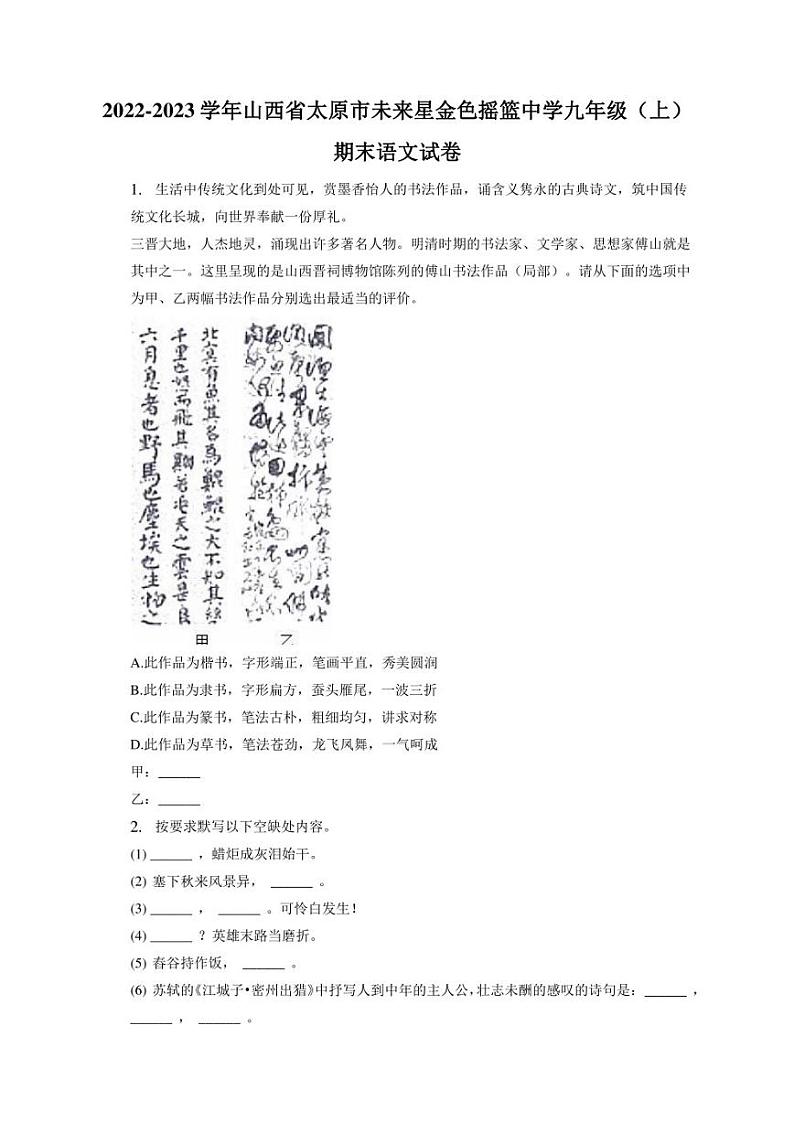 2022-2023 学年山西省太原市未来星金色摇篮中学九年级（上）
期末语文试卷
1. 生活中传统文化到处可见，赏墨香怡人的书法作品，诵含义隽永的古典诗文，筑中国传
统文化长城，向世界奉献一份厚礼。
三晋大地，人杰地灵，涌现出许多著名人物。明清时期的书法家、文学家、思想家傅山就是
其中之一。这里呈现的是山西晋祠博物馆陈列的傅山书法作品（局部）。请从下面的选项中
为甲、乙两幅书法作品分别选出最适当的评价。
北冥有魚其名為鯤鯤之大不知其幾
千里也怒而飛其翼若垂天之雲是
六月息者也野馬也塵埃也生物之
甲 乙
A.此作品为楷书，字形端正，笔画平直，秀美圆润
B.此作品为隶书，字形扁方，蚕头雁尾，一波三折
C.此作品为篆书，笔法古朴，粗细均匀，讲求对称
D.此作品为草书，笔法苍劲，龙飞凤舞，一气呵成
甲：______
乙：______
2. 按要求默写以下空缺处内容。
(1) ______ ，蜡炬成灰泪始干。
(2) 塞下秋来风景异， ______ 。
(3) ______ ， ______ 。可怜白发生！
(4) ______ ？英雄末路当磨折。
(5) 舂谷持作饭， ______ 。
(6) 苏轼的《江城子•密州出猎》中抒写人到中年的主人公，壮志未酬的感叹的诗句是：______ ，
______ ， ______ 。